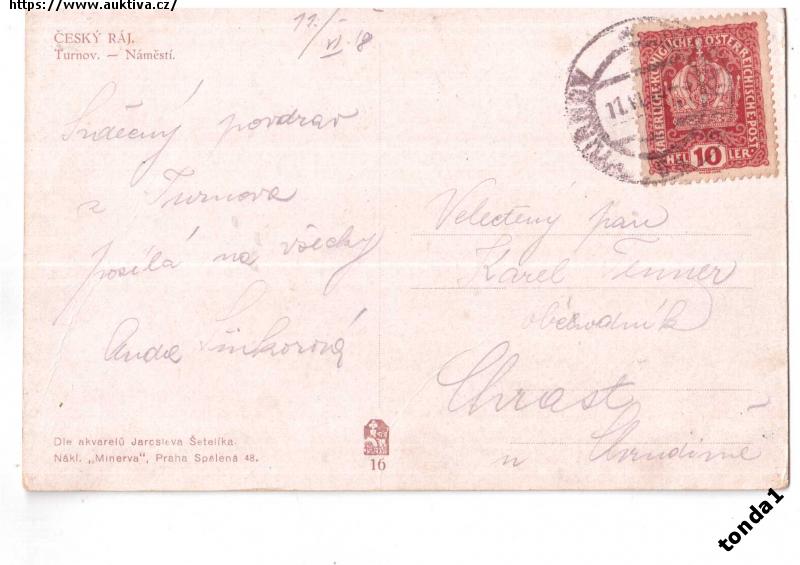 https://www.auktiva.cz/
ČESKÝ RÁJ.
Turnov. — Náměstí.
11./VI 18
Srdečný pozdrav
z Turnova
posílá na všecky
Anda
KAISERLICHE KÖNIGLICHE ÖSTERREICHISCHE POST
HEL 10 LER
11.VI
Velectěný pan
Karel
obchodník
Chrast
u Chrudime
Dle akvarelů Jaroslava Šetelíka.
Nákl. „Minerva", Praha Spálená 48.
16
tonda1